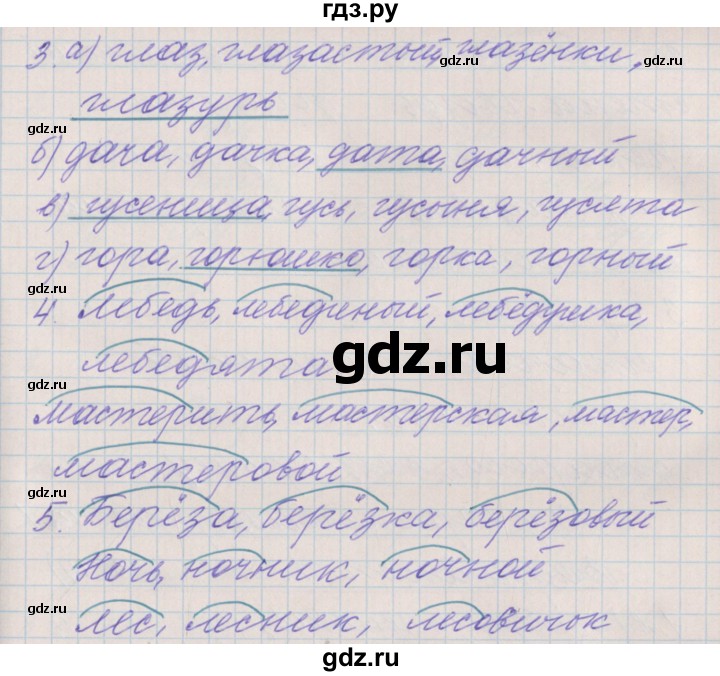 гдз.ру
3. а) глаз, глазастый, глазёнки,
глазурь
gdz.ru
gdz.ru
б) дача, дачка, дата, дачный
в) гусеница, гусь, гусыня, гусята
gdz.ru
г) гора, горюшко, горка, горный
gdz.ru
4. лебедь, лебединый, лебёдушка,
gdz.ru
лебедята
gdz.ru
мастерить, мастерская, мастер,
gdz.ru
мастеровой
gdz.ru
5. Берёза, берёзка, берёзовый
Ночь, ночник, ночной
gdz.ru
gdz.ru
лес, лесник, лесовичок
gdz.ru